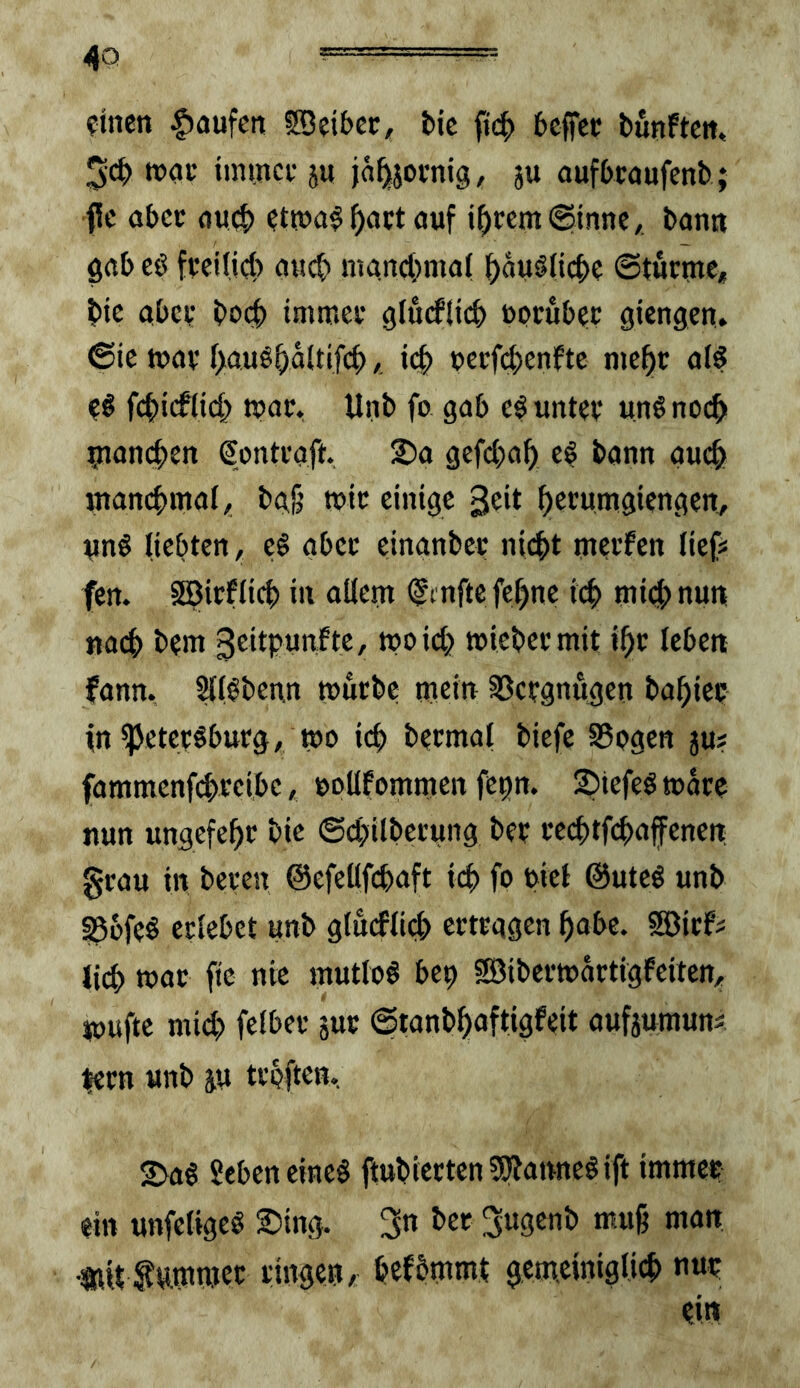 40
einen Haufen Weiber, die sich besser dünkten.
Ich war immer zu jähzornig, zu aufbrausend;
sie aber auch etwas hart auf ihrem Sinne, dann
gab es freilich auch manchmal häusliche Stürme,
die aber doch immer glücklich vorüber giengen.
Sie war haushältisch, ich verschenkte mehr als
es schicklich war. Und so gab es unter uns noch
manchen Contrast. Da geschah es dann auch
manchmal, daß wir einige Zeit herumgiengen,
uns liebten, es aber einander nicht merken lies-
sen. Wirklich in allem Ernste sehne ich mich nun
nach dem Zeitpunkte, wo ich wieder mit ihr leben
kann. Alsdenn würde mein Vergnügen dahier
in Petersburg, wo ich dermal diese Bogen zu-
sammenschreibe, vollkommen seyn. Dieses wäre
nun ungefehr die Schilderung der rechtschaffenen
Frau in deren Gesellschaft ich so viel Gutes und
Böses erlebet und glücklich ertragen habe. Wirk-
lich war sie nie mutlos bey Widerwärtigkeiten,
wuste mich selber zur Standhaftigkeit aufzumun-
tern und zu trösten.
Das Leben eines studierten Mannes ist immer
ein unseliges Ding. In der Jugend muß man
mit Kummer ringen, bekömmt gemeiniglich nur
ein